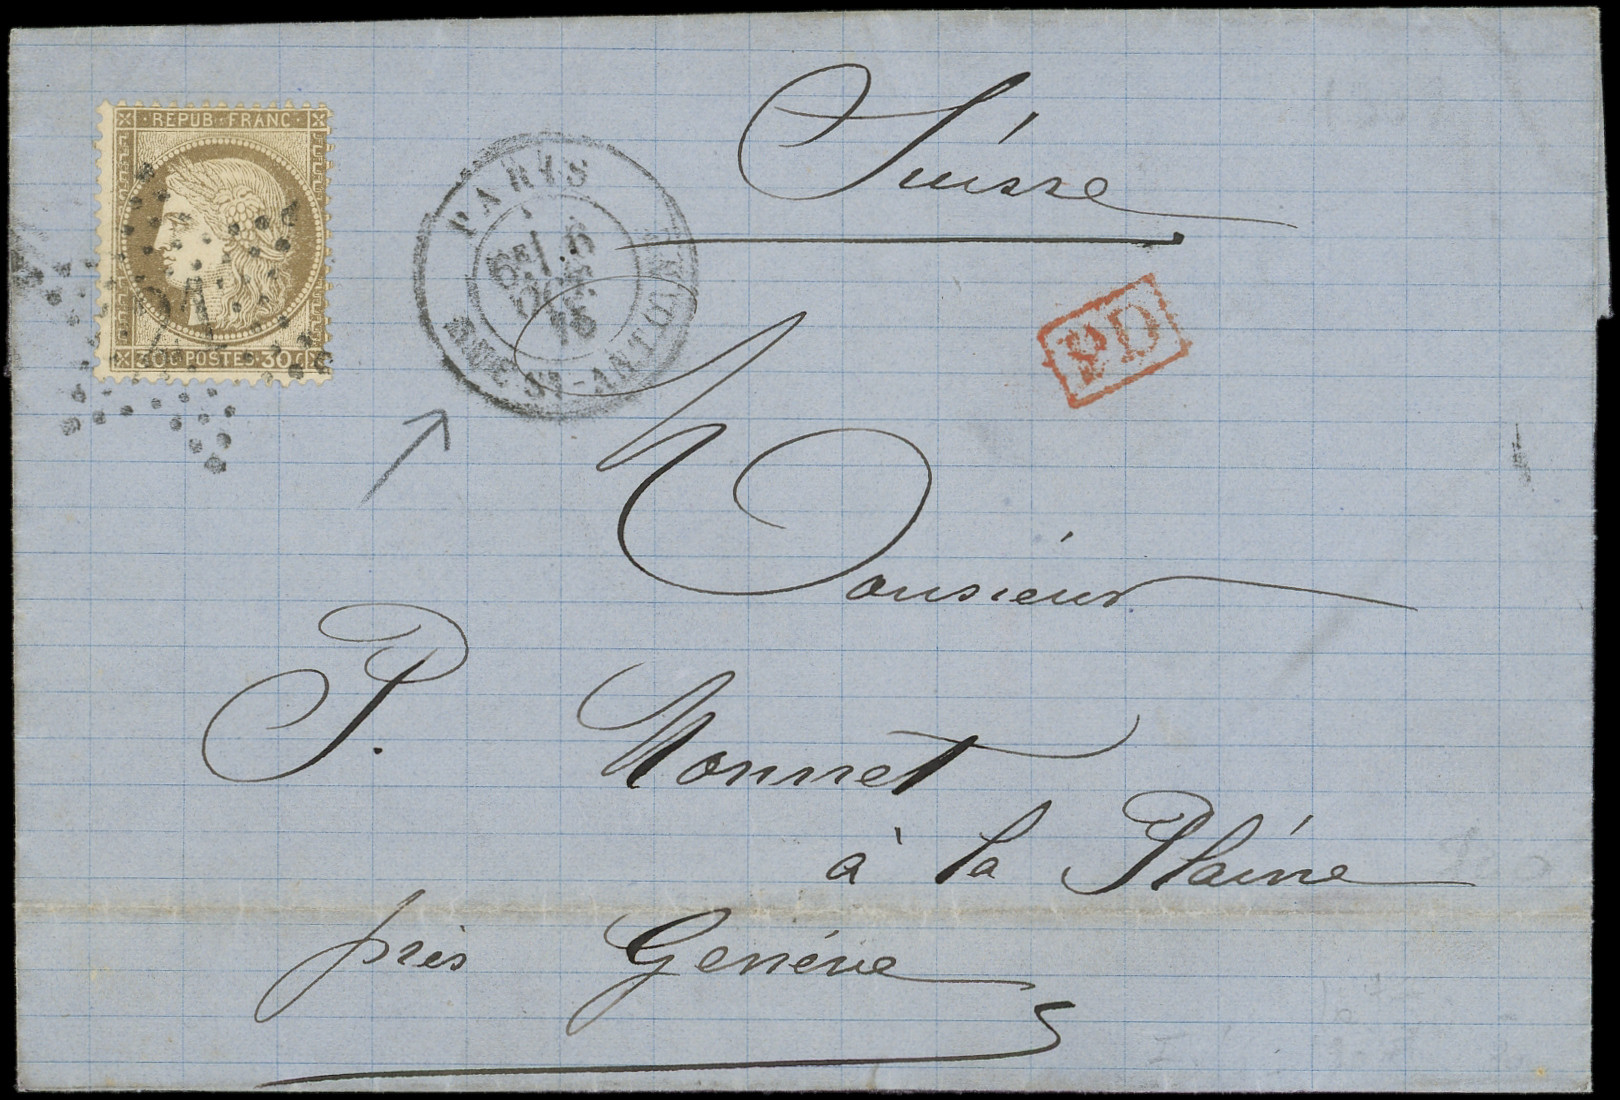 REPUB · FRANC ·
30 C POSTES 30 C
21
PARIS
6E/L. 6
DÉC.
75
RUE ST-ANTOINE
Suisse
PD
Monsieur
P. Monnet
à la Plaine
près Genève